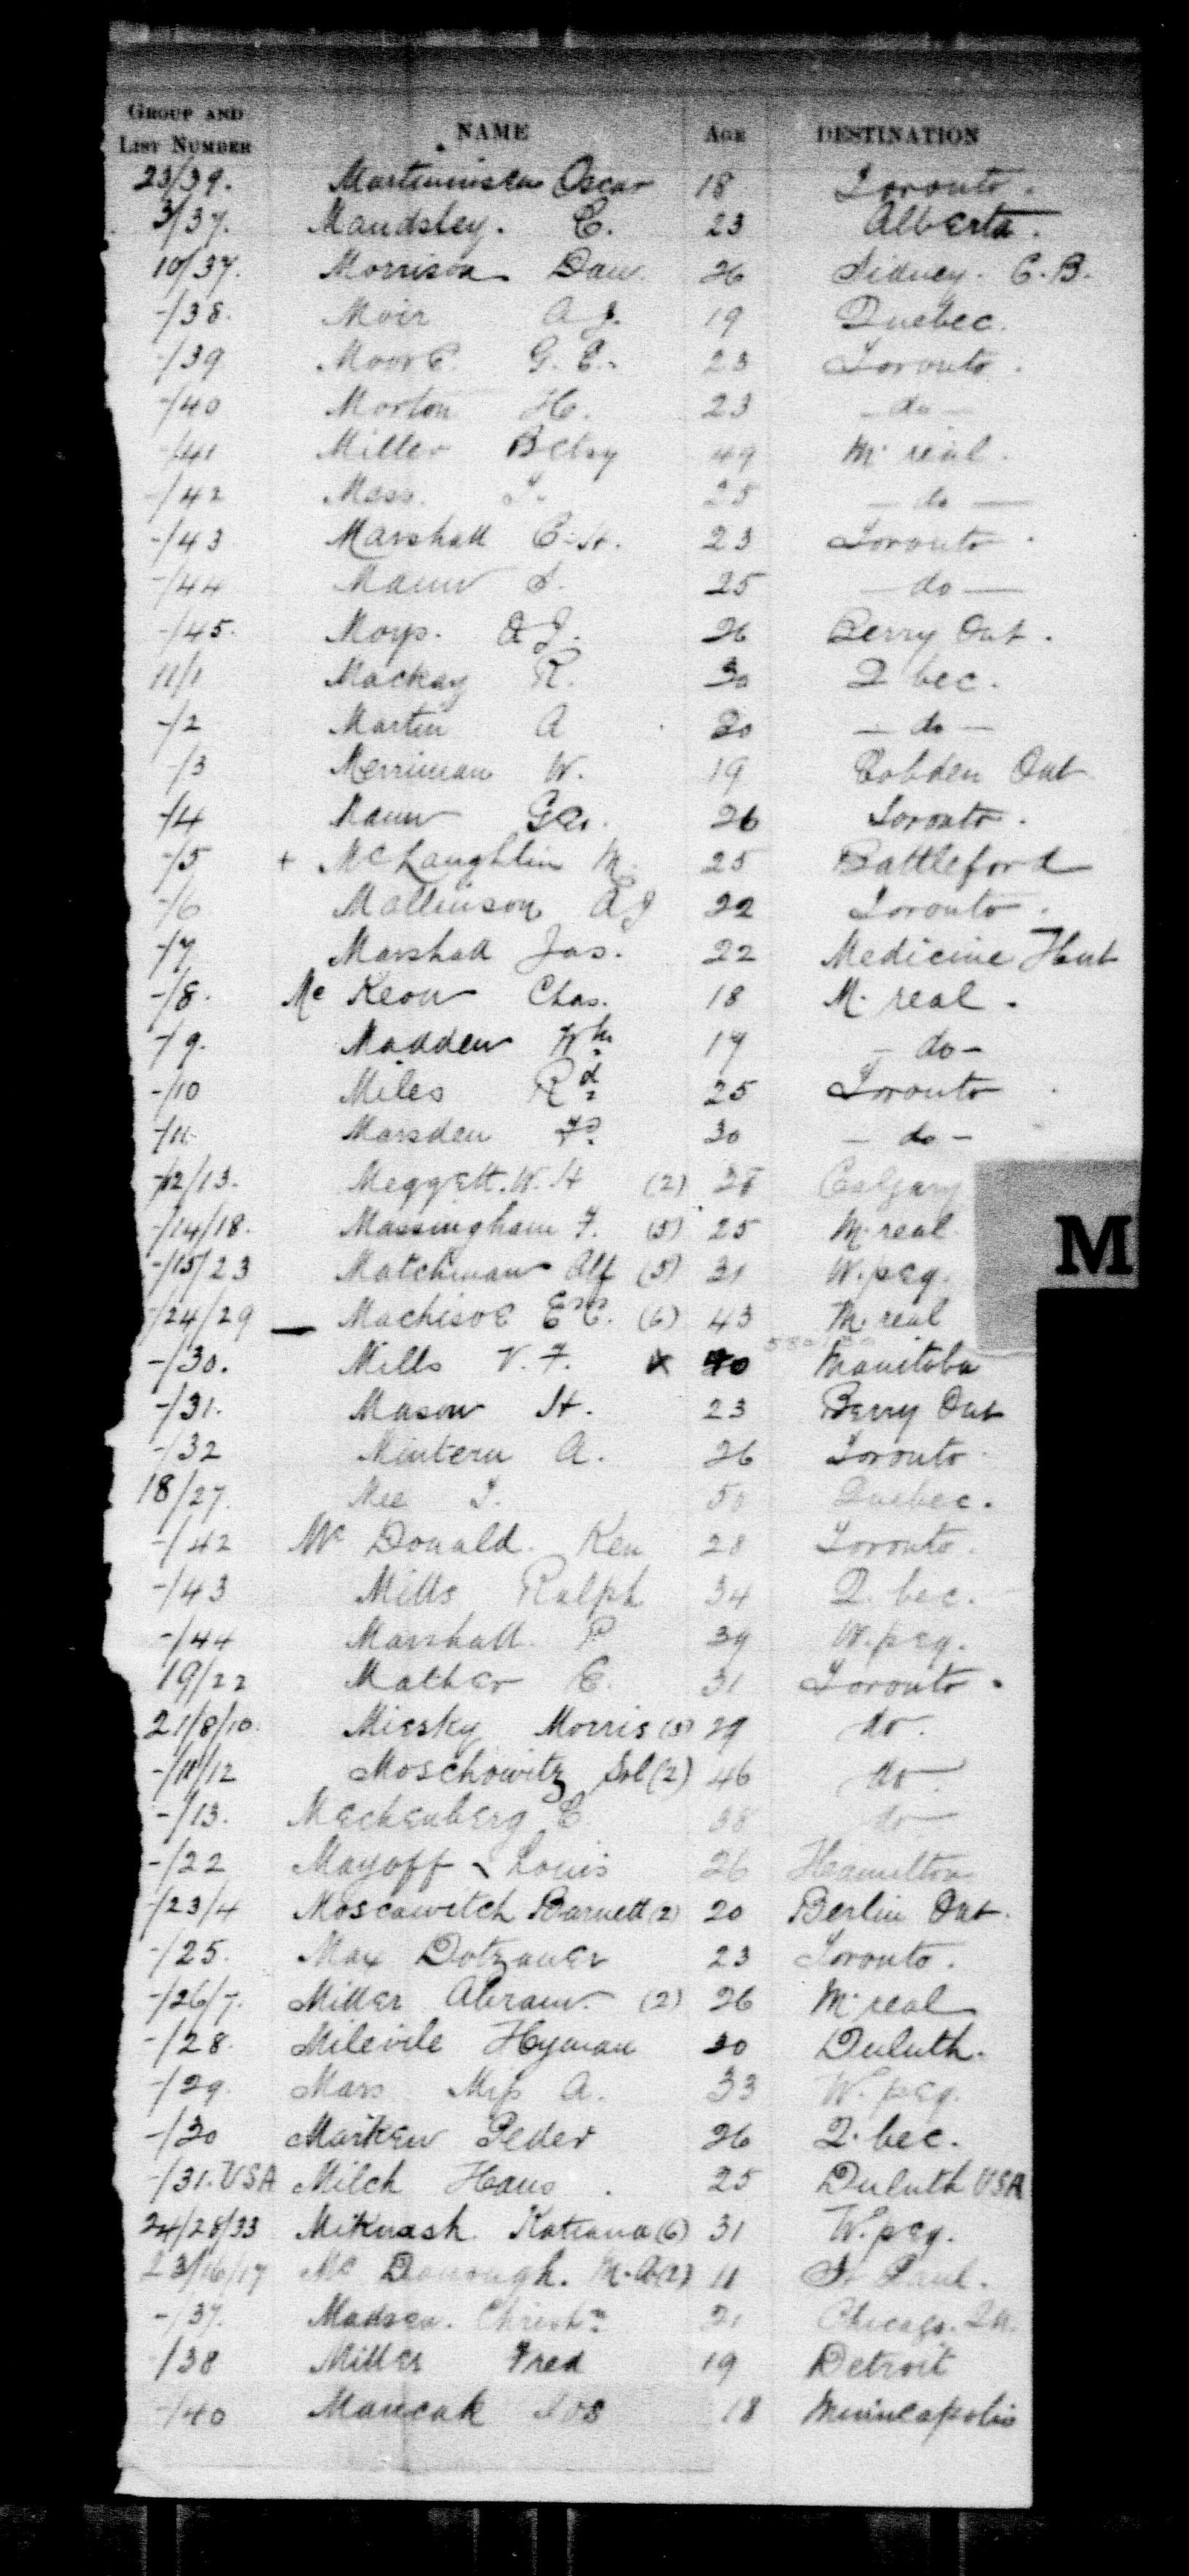 GROUP AND LIST NUMBER NAME AGE DESTINATION
23/39. Oscar 18 Toronto.
3/37. Maudsley. E. 23 Alberta.
10/37. Morrison Dan 26 Sidney. C.B.
-/38. Moir A J. 19 Quebec.
-/39 Moore. G. E. 23 Toronto.
-/40 Morton H. 23 -do-
-/41 Miller Betsy 49 M. real.
-/42 Mass. 25 -do-
-/43 Marshall C. H. 23 Toronto.
-/44 Mann S. 25 -do-
-/45. Moys. A J. 26 Berry Ont.
11/1 Mackay R. 30 Q bec.
-/2 Martin A 20 -do-
-/3 Merriman W. 19 Cobden Ont
-/4 Mann Geo. 26 Toronto.
-/5 + McLaughlin M. 25 Battleford
-/6 Mallinson A J 22 Toronto.
-/7 Marshall Jas. 22 Medicine Hat
-/8. Mc Keon Chas. 18 M. real.
-/9. Madden Wm 19 -do-
-/10 Miles Rd 25 Toronto
-/11. Marsden 30 -do-
-/12/13. Meggett. W. H (2) 28 Calgary
-/14/18. Massingham F. (5) 25 M. real
M
-/15/23 Matchman Alf (5) 31 W. peg.
-/24/29 (6) 43 M. real
-/30. Mills V. F. 40 Manitoba
-/31. Mason H. 23 Berry Ont
-/32 Mintern A. 26 Toronto
18/27. Mee 50 Quebec.
-/42 Mc Donald. Ken 28 Toronto.
-/43 Mills Ralph 34 Q. bec.
-/44 Marshall P 39 W. peg.
19/22 Mather E. 31 Toronto.
21/8/10. Miesky Morris (3) 29 do.
-/11/12 Moschowitz Sol (2) 46 do.
-/13. Meckenberg C. 38 do
-/22 Mayoff Louis 26 Hamilton
-/23/4 Moscowitch Barnett (2) 20 Berlin Ont.
-/25. Max Dotzauer 23 Toronto.
-/26/7. Miller Abram. (2) 26 M. real
-/28. Hyman 30 Duluth.
-/29. Mars Miss A. 33 W. peg.
-/30 Marken Peder 26 Q. bec.
-/31. USA Milch Hans. 25 Duluth USA
24/28/33 Miknash. Katrana (6) 31 W. peg.
23/16/17 Mc Donough. M. A (2) 11 St Paul.
-/37. Madsen. Christn 21 Chicago. Ill.
/38 Miller Fred 19 Detroit
-/40 Mancak 18 Minneapolis